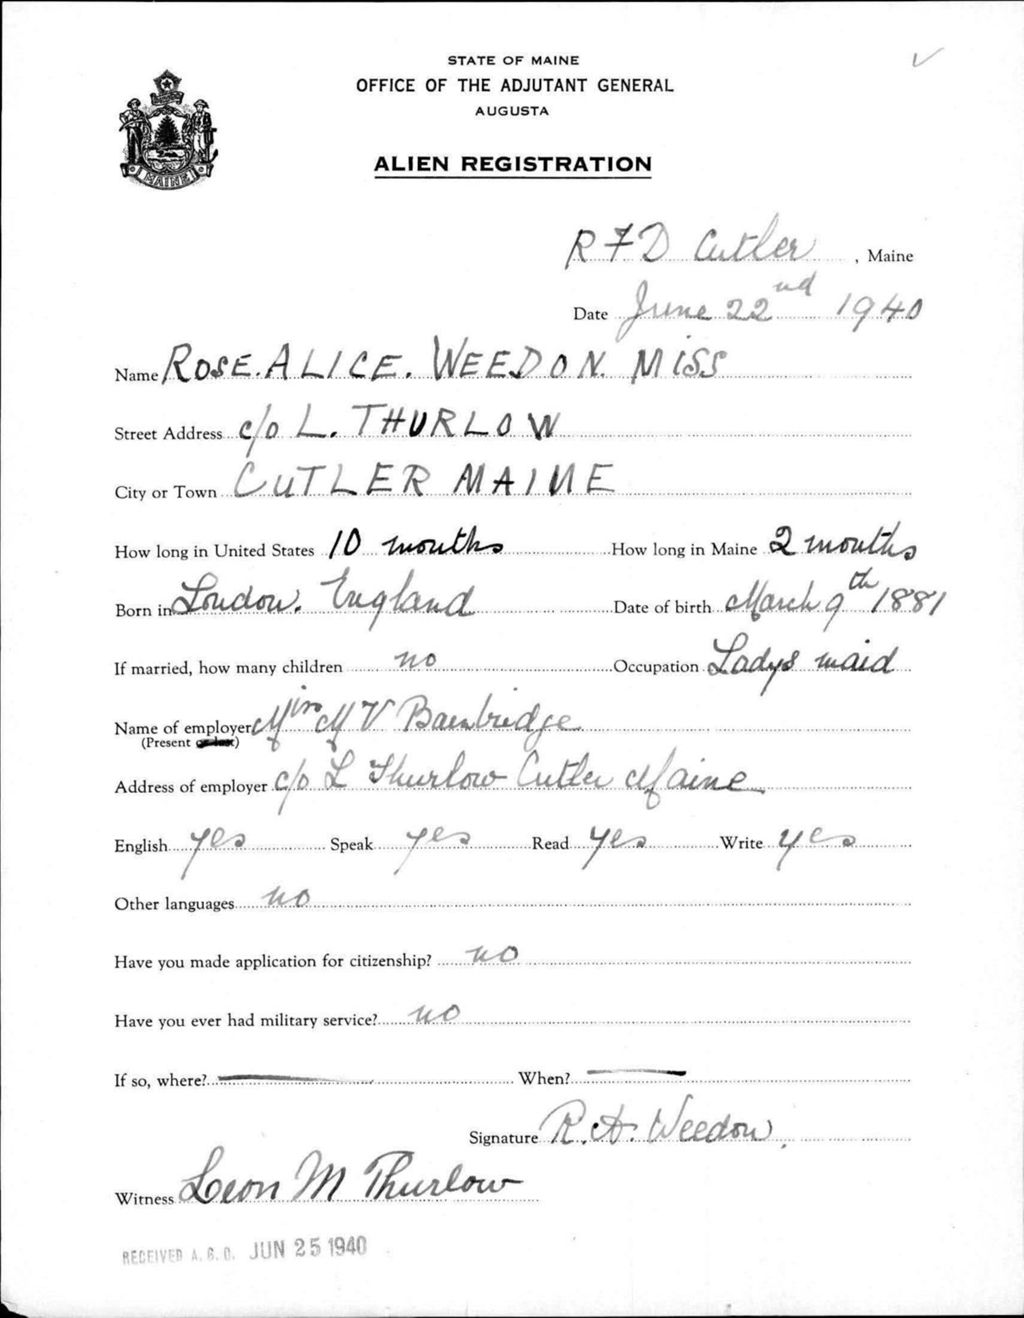 STATE OF MAINE
OFFICE OF THE ADJUTANT GENERAL
AUGUSTA
MAINE
ALIEN REGISTRATION
R F D Cutler, Maine
Date June 22nd 1940
Name ROSE. ALICE. WEEDON. MISS
Street Address c/o L. THURLOW
City or Town CUTLER MAINE
How long in United States 10 months How long in Maine 2 months
Born in London. England Date of birth March 9th 1881
If married, how many children no Occupation Ladys maid
Name of employer M V Bainbridge
(Present or last)
Address of employer c/o L Thurlow Cutler Maine
English yes Speak yes Read yes Write yes
Other languages no
Have you made application for citizenship? no
Have you ever had military service? no
If so, where? When?
Signature R. A. Weedon.
Witness Leon M Thurlow
RECEIVED A. G. O. JUN 25 1940